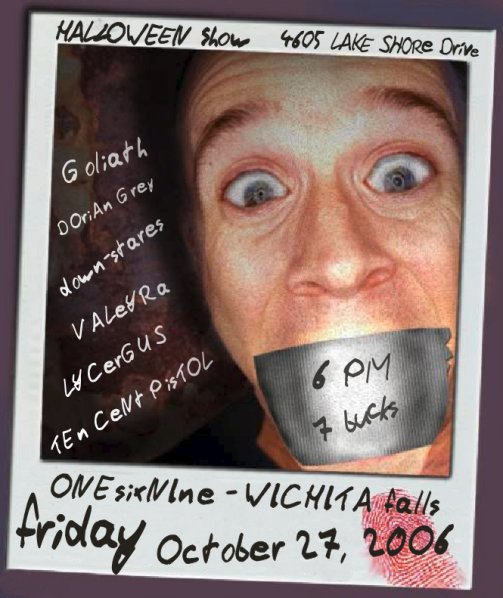 HALLOWEEN Show 4605 LAKE SHORe Drive
Goliath
DOriAn Grey
down-stares
VALeYRa
LYCerGUS
TEn CeNt PisTOL
6 PM
7 bucks
ONEsixNIne - WICHITA falls
friday October 27, 2006